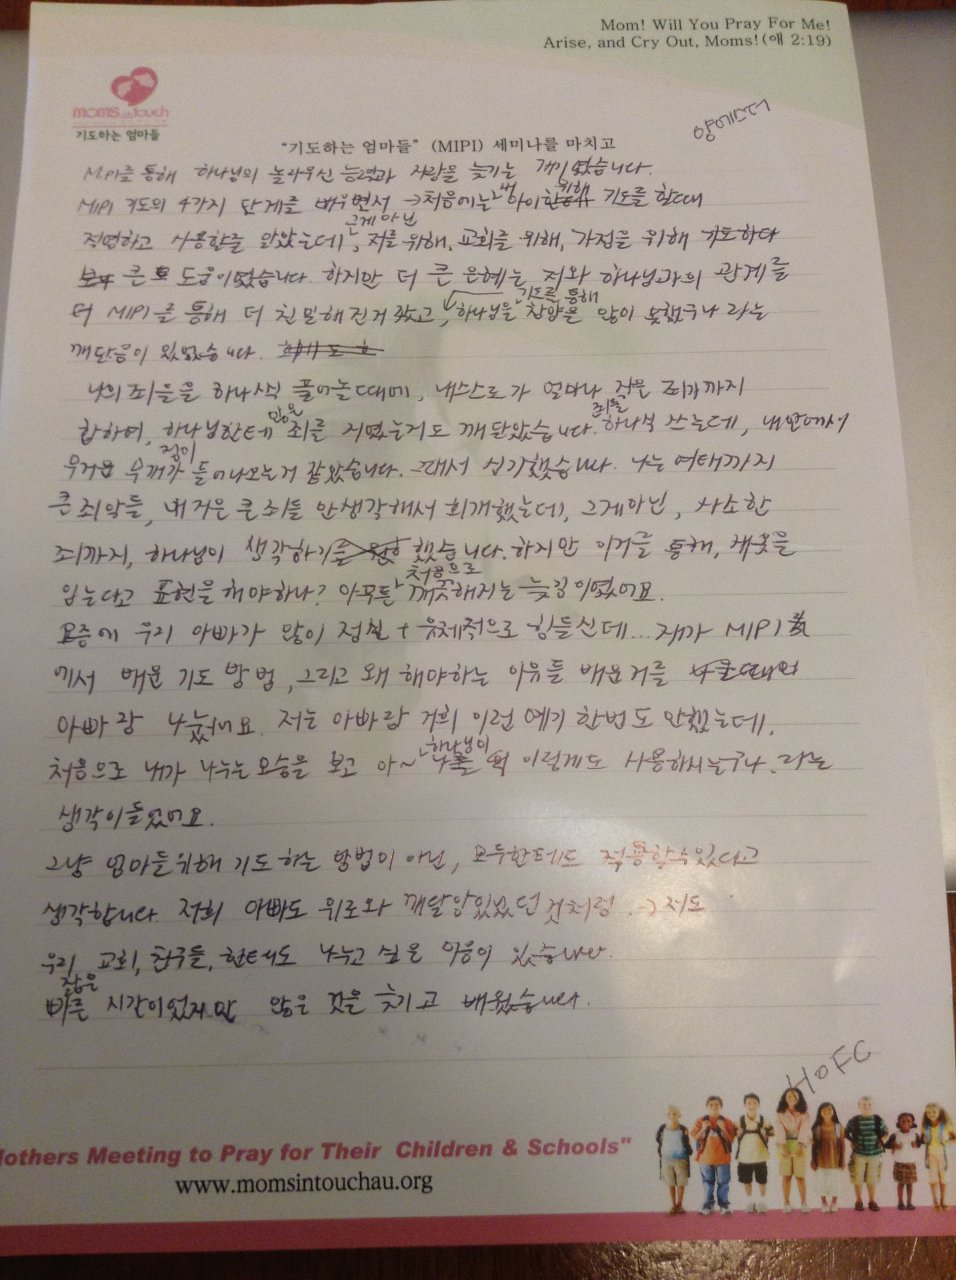 Mom! Will You Pray For Me!
Arise, and Cry Out, Moms!(애 2:19)
moms in touch
기도하는 엄마들
양에스더
"기도하는 엄마들" (MIPI) 세미나를 마치고
MIPI를 통해 하나님의 놀라우신 능력과 사랑을 늦기는 개기 였습니다.
MIPI 기도의 4가지 단게를 배우면서 → 처음에는 아이 위해 기도를 할때
적명하고 사용한줄 알았는데, 그게 아닌 저를 위해, 교회를 위해, 가정을 위해 기도하다
큰 도움이였습니다. 하지만 더 큰 은혜는, 저와 하나님과의 관계를
더 MIPI를 통해 더 친밀해진거 같고, 기도를 통해 하나님을 찬양을 많이 못했구나 라는
깨닫음이 있었습니다.
나의 죄들을 하나식 풀어놀때에, 내스스로가 얼마나 적은 죄까지
합하여, 하나님한테 많은 죄를 지였는거도 깨달았습니다. 죄를 하나식 쓰는데, 내 안에서
무거운 무게가 들어나오는거 같았습니다. 그래서 생각했습니다. 나는 여태까지
큰 죄악들, 내 저은 큰 죄들 만 생각해서 회개했는데, 그게아닌, 사소한
죄까지, 하나님이 생각하기 했습니다. 하지만 이거를 통해, 새옷을
입는다고 표현을 해야하나? 아무튼 처음으로 깨끗해지는 늦김이였어요.
요증에 우리 아빠가 많이 정신 + 육체적으로 힘들신데... 재가 MIPI
에서 배운 기도 방법, 그리고 왜 해야하는 이유들 배운거를
아빠랑 나눴어요. 저는 아빠랑 거희 이런 예기 한번도 안했는데,
처음으로 내가 나누는 모습을 보고 아~ 하나님이 나를 이렇게도 사용하시는구나. 라는
생각이 들었어요.
그냥 엄마들위해 기도 하는 방법이 아닌, 모두한테도 적용할수있다고
생각합니다. 저희 아빠도 위로와 깨달암있었던 것처럼 → 저도
우리 교회, 친구들, 한테도 나누고 싶은 마음이 있습니다.
짧은 시간이었지만 많은 것을 늦기고 배웠습니다.
HOFC
Mothers Meeting to Pray for Their Children & Schools"
www.momsintouchau.org